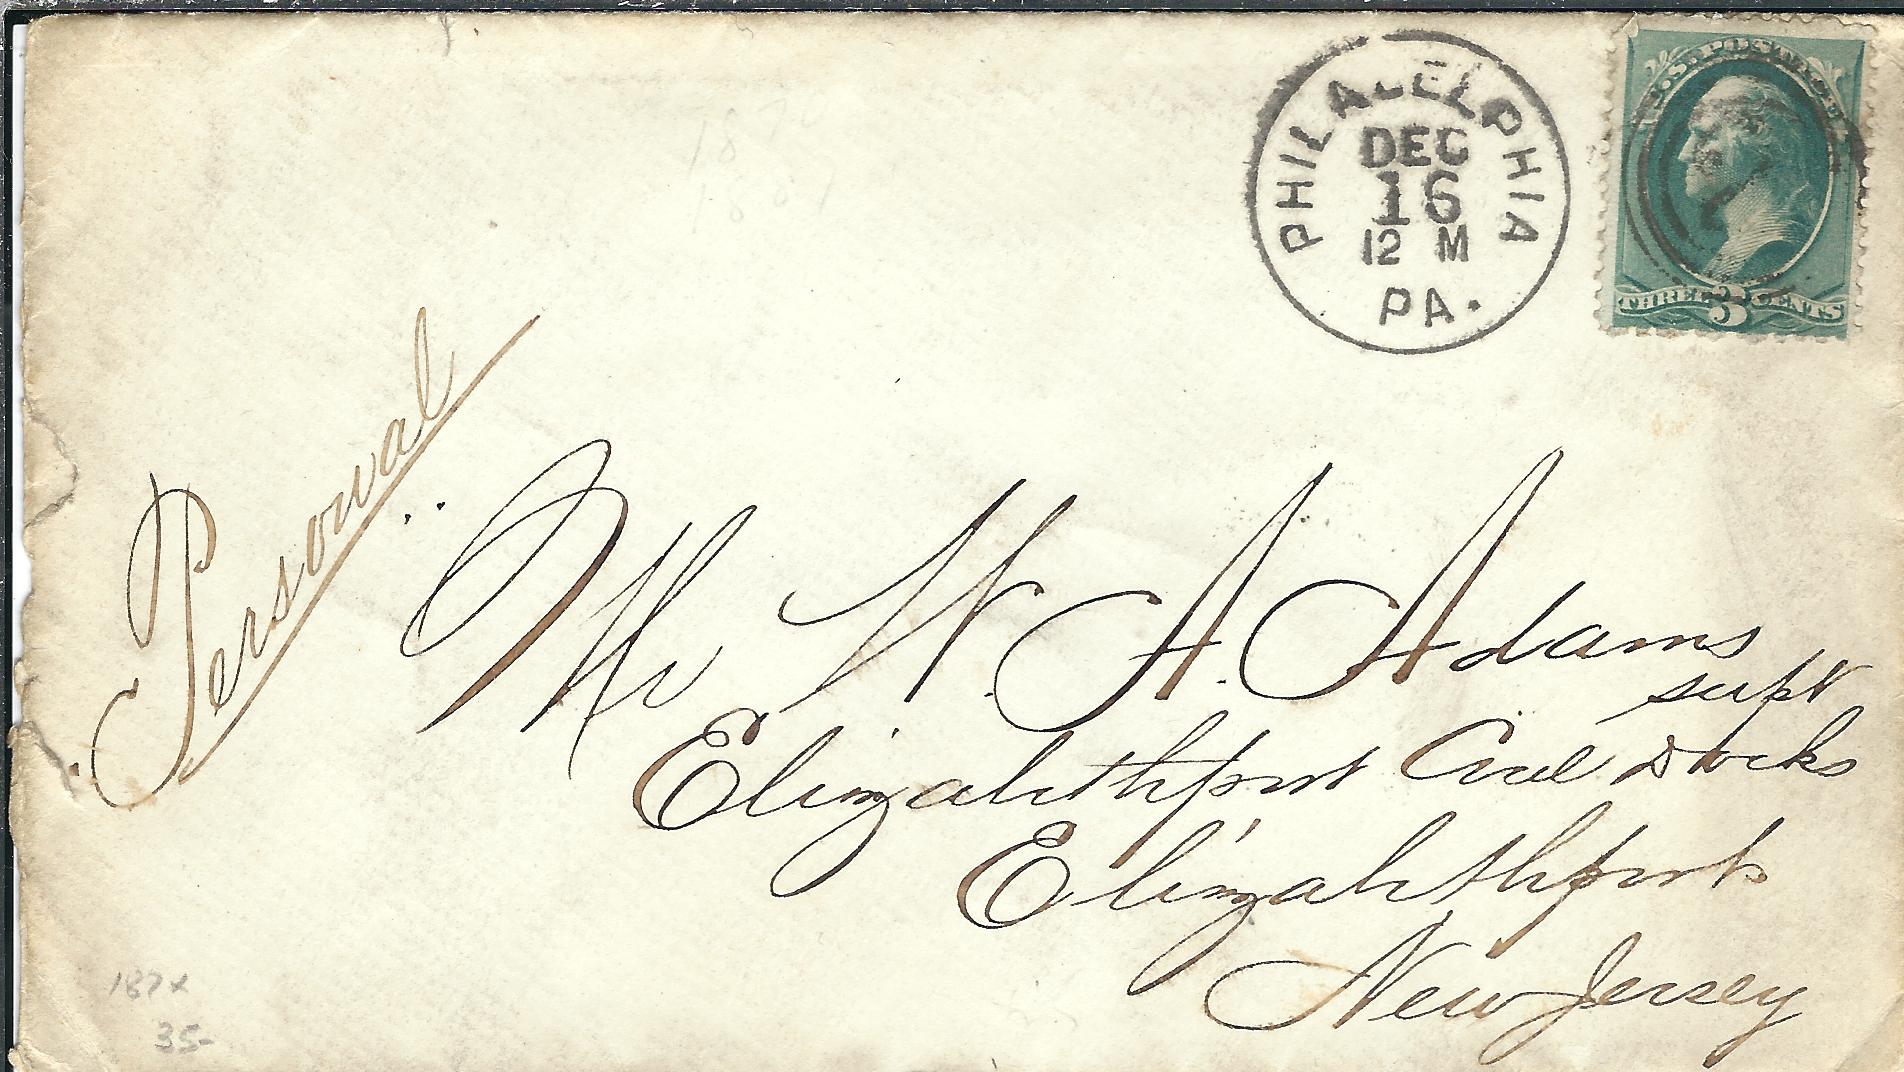 PHILADELPHIA
DEC
16
12 M
PA.
U.S. POSTAGE
THREE 3 CENTS
Personal
Mr W. A. Adams
supt
Elizabethport Coal Docks
Elizabethport
New Jersey
187x
35-